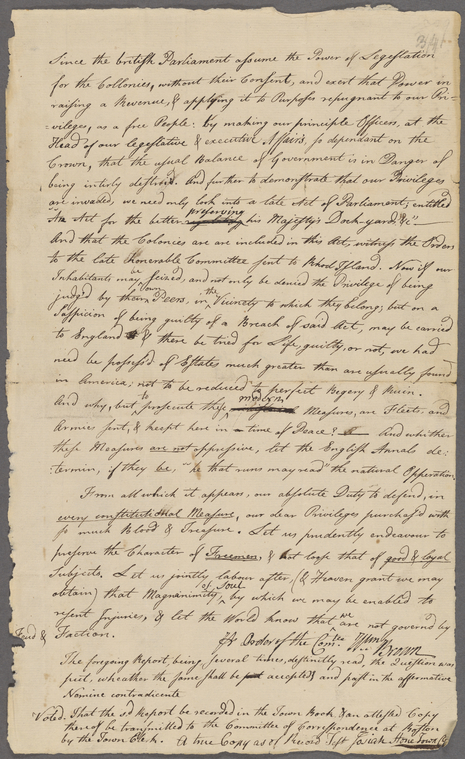 341
Since the british Parliament assume the Power of Legeslation
for the Collonies, without their Consent, and exert that Power in
raising a Revenue, & applying it to Purposes repugnant to our Pri-
vileges, as a free People: by making our principle Officers, at the
Head of our legeslative & executive Affairs, so dependant on the
Crown, that the usual Balance of Government is in Danger of
being intirly destroy'd. And further to demonstrate that our Privileges
are invaded, we need only look into a late Act of Parliament, entitled
"An Act for the better preserving his Majesty's Dock-yard, &c"—
And that the Colonies are are included in this Act, witness the Orders
to the late Honerable Committee sent to Rhod Island. Now if our
Inhabitants may be seized, and not only be denied the Privilege of being
judged by their own Peers, in the Vicinety to which they belong; but on a
Suspicion of being guilty of a Breach of said Act, may be carried
to England & there be tried for Life, guilty, or not, we had
need be possess'd of Estates much greater than are usually found
in America; not to be reduced to perfect Begery & Ruin.
And why, but to prosecute these Measures, are Fleets and
Armies sent, & keept here in time of Peace? And whither
these Measures are not oppressive, let the English Annals de-
termin, if they be, "he that runs may read" the natural Opperation.
From all which it appears, our absolute Duty to defend, in
every constitutional Measure, our dear Privileges purchas'd with
so much Blood & Treasure. Let us prudently endeavour to
preserve the Character of Freemen, & not lose that of good & loyal
Subjects. Let us jointly labour after, (& Heaven grant we may
obtain) that Magnanimity of Soul, by which we may be enabled to
resent Injuries, & let the World know that we are not governd by
Feud & Faction.
Pr Order of the Comtte Wm Young Brown
The foregoing Report, being several times, destinktly read, the Question was
put, wheather the same shall be accepted & past in the affermative
Nomine contradicente
Voted. That the sd Report be recorded in the Town Book & an attested Copy
thereof be transmitted to the Committee of Correspondence at Boston
by the Town Clerk. A true Copy as of Record Test Josiah Stone Town Clk